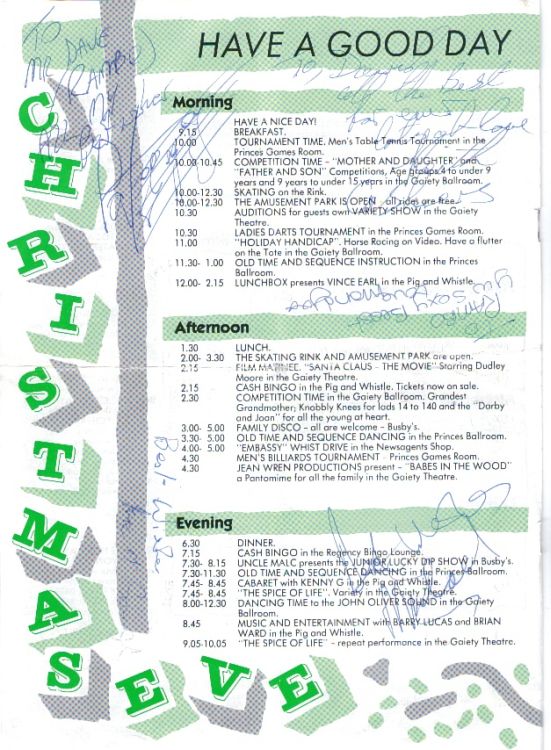 HAVE A GOOD DAY
CHRISTMAS EVE
TO DAVE
MR (RAMBO)
MY
Morning
HAVE A NICE DAY!
9.15 BREAKFAST.
10.00 TOURNAMENT TIME. Men's Table Tennis Tournament in the
Princes Games Room.
10.00-10.45 COMPETITION TIME – "MOTHER AND DAUGHTER" and
"FATHER AND SON" Competitions, Age groups 4 to under 9
years and 9 years to under 15 years in the Gaiety Ballroom.
10.00-12.30 SKATING on the Rink.
10.00-12.30 THE AMUSEMENT PARK IS OPEN – all rides are free.
10.30 AUDITIONS for guests own VARIETY SHOW in the Gaiety
Theatre.
10.30 LADIES DARTS TOURNAMENT in the Princes Games Room.
11.00 "HOLIDAY HANDICAP". Horse Racing on Video. Have a flutter
on the Tote in the Gaiety Ballroom.
11.30- 1.00 OLD TIME AND SEQUENCE INSTRUCTION in the Princes
Ballroom.
12.00- 2.15 LUNCHBOX presents VINCE EARL in the Pig and Whistle.
TO
RAMBO
Afternoon
1.30 LUNCH.
2.00- 3.30 THE SKATING RINK AND AMUSEMENT PARK are open.
2.15 FILM MATINEE. "SANTA CLAUS – THE MOVIE" Starring Dudley
Moore in the Gaiety Theatre.
2.15 CASH BINGO in the Pig and Whistle. Tickets now on sale.
2.30 COMPETITION TIME in the Gaiety Ballroom. Grandest
Grandmother; Knobbly Knees for lads 14 to 140 and the "Darby
and Joan" for all the young at heart.
3.00- 5.00 FAMILY DISCO – all are welcome – Busby's.
3.30- 5.00 OLD TIME AND SEQUENCE DANCING in the Princes Ballroom.
4.00- 5.00 "EMBASSY" WHIST DRIVE in the Newsagents Shop.
4.30 MEN'S BILLIARDS TOURNAMENT – Princes Games Room.
4.30 JEAN WREN PRODUCTIONS present – "BABES IN THE WOOD"
a Pantomime for all the family in the Gaiety Theatre.
Evening
6.30 DINNER.
7.15 CASH BINGO in the Regency Bingo Lounge.
7.30- 8.15 UNCLE MALC presents the JUNIOR LUCKY DIP SHOW in Busby's.
7.30-11.30 OLD TIME AND SEQUENCE DANCING in the Princes Ballroom.
7.45- 8.45 CABARET with KENNY G in the Pig and Whistle.
7.45- 8.45 "THE SPICE OF LIFE". Variety in the Gaiety Theatre.
8.00-12.30 DANCING TIME to the JOHN OLIVER SOUND in the Gaiety
Ballroom.
8.45 MUSIC AND ENTERTAINMENT with BARRY LUCAS and BRIAN
WARD in the Pig and Whistle.
9.05-10.05 "THE SPICE OF LIFE" – repeat performance in the Gaiety Theatre.